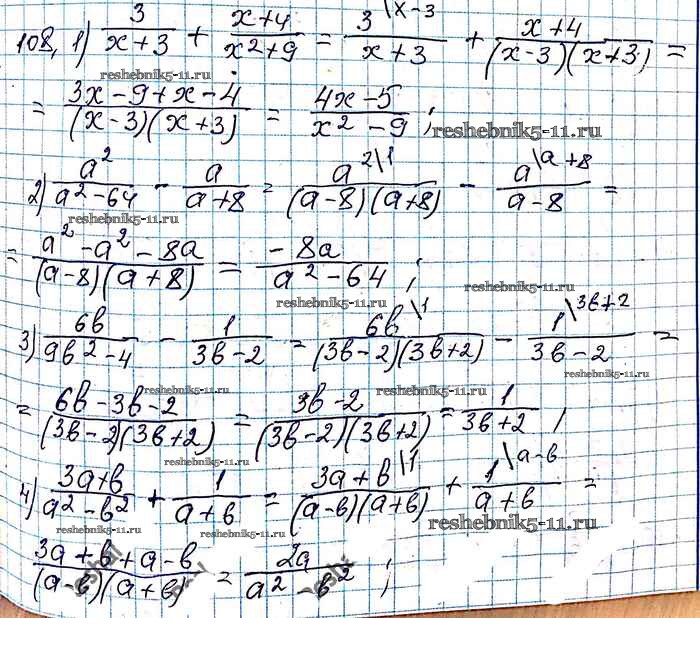 108, 1) 3/(x+3) + (x+4)/(x²+9) = 3\x-3/(x+3) + (x+4)/((x-3)(x+3)) =
reshebnik5-11.ru
= (3x-9+x-4)/((x-3)(x+3)) = (4x-5)/(x²-9);
reshebnik5-11.ru
2) a²/(a²-64) - a/(a+8) = a²\1/((a-8)(a+8)) - a\a+8/(a-8) =
reshebnik5-11.ru
= (a²-a²-8a)/((a-8)(a+8)) = -8a/(a²-64);
reshebnik5-11.ru
reshebnik5-11.ru
3) 6b/(9b²-4) - 1/(3b-2) = 6b\1/((3b-2)(3b+2)) - 1\3b+2/(3b-2) =
reshebnik5-11.ru
reshebnik5-11.ru reshebnik5-11.ru
= (6b-3b-2)/((3b-2)(3b+2)) = (3b-2)/((3b-2)(3b+2)) = 1/(3b+2);
reshebnik5-11.ru
4) (3a+b)/(a²-b²) + 1/(a+b) = (3a+b)\1/((a-b)(a+b)) + 1\a-b/(a+b) =
reshebnik5-11.ru reshebnik5-11.ru
reshebnik5-11.ru
(3a+b+a-b)/((a-b)(a+b)) = 2a/(a²-b²);